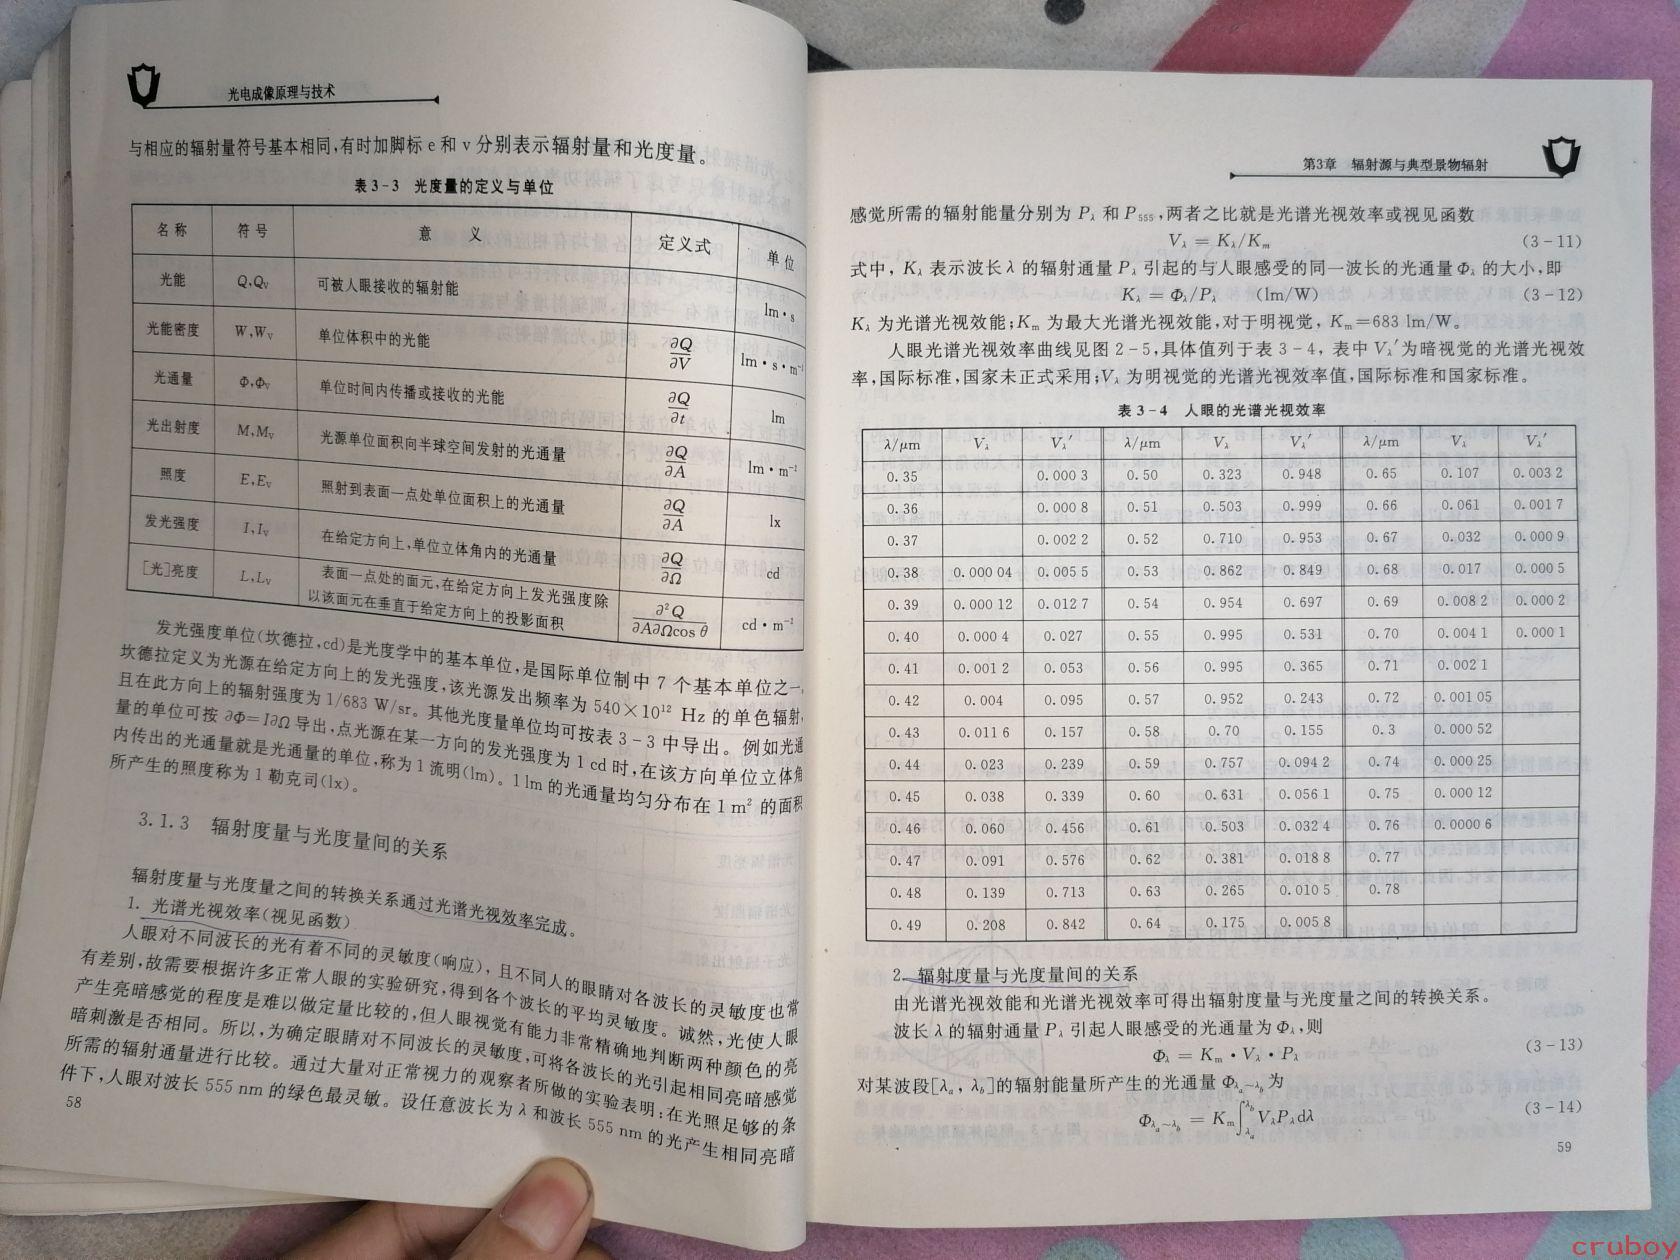 光电成像原理与技术
与相应的辐射量符号基本相同,有时加脚标 e 和 v 分别表示辐射量和光度量。
表 3-3 光度量的定义与单位
名称 符号 意 义 定义式 单位
光能 Q,Qv 可被人眼接收的辐射能 lm·s
光能密度 W,Wv 单位体积中的光能 ∂Q/∂V lm·s·m⁻³
光通量 Φ,Φv 单位时间内传播或接收的光能 ∂Q/∂t lm
光出射度 M,Mv 光源单位面积向半球空间发射的光通量 ∂Q/∂A lm·m⁻²
照度 E,Ev 照射到表面一点处单位面积上的光通量 ∂Q/∂A lx
发光强度 I,Iv 在给定方向上,单位立体角内的光通量 ∂Q/∂Ω cd
[光]亮度 L,Lv 表面一点处的面元,在给定方向上发光强度除
以该面元在垂直于给定方向上的投影面积 ∂²Q/∂A∂Ωcos θ cd·m⁻²
发光强度单位(坎德拉,cd)是光度学中的基本单位,是国际单位制中 7 个基本单位之一。
坎德拉定义为光源在给定方向上的发光强度,该光源发出频率为 540×10¹² Hz 的单色辐射,
且在此方向上的辐射强度为 1/683 W/sr。其他光度量单位均可按表 3-3 中导出。例如光通
量的单位可按 ∂Φ=I∂Ω 导出,点光源在某一方向的发光强度为 1 cd 时,在该方向单位立体角
内传出的光通量就是光通量的单位,称为 1 流明(lm)。1 lm 的光通量均匀分布在 1 m² 的面积
所产生的照度称为 1 勒克司(lx)。
3.1.3 辐射度量与光度量间的关系
辐射度量与光度量之间的转换关系通过光谱光视效率完成。
1. 光谱光视效率(视见函数)
人眼对不同波长的光有着不同的灵敏度(响应),且不同人的眼睛对各波长的灵敏度也常
有差别,故需要根据许多正常人眼的实验研究,得到各个波长的平均灵敏度。诚然,光使人眼
产生亮暗感觉的程度是难以做定量比较的,但人眼视觉有能力非常精确地判断两种颜色的亮
暗刺激是否相同。所以,为确定眼睛对不同波长的灵敏度,可将各波长的光引起相同亮暗感觉
所需的辐射通量进行比较。通过大量对正常视力的观察者所做的实验表明:在光照足够的条
件下,人眼对波长 555 nm 的绿色最灵敏。设任意波长为 λ 和波长 555 nm 的光产生相同亮暗
58
第3章 辐射源与典型景物辐射
感觉所需的辐射能量分别为 Pλ 和 P₅₅₅,两者之比就是光谱光视效率或视见函数
Vλ = Kλ/Km (3-11)
式中, Kλ 表示波长 λ 的辐射通量 Pλ 引起的与人眼感受的同一波长的光通量 Φλ 的大小,即
Kλ = Φλ/Pλ (lm/W) (3-12)
Kλ 为光谱光视效能;Km 为最大光谱光视效能,对于明视觉, Km=683 lm/W。
人眼光谱光视效率曲线见图 2-5,具体值列于表 3-4, 表中 Vλ′为暗视觉的光谱光视效
率,国际标准,国家未正式采用;Vλ 为明视觉的光谱光视效率值,国际标准和国家标准。
表 3-4 人眼的光谱光视效率
λ/μm Vλ Vλ′ λ/μm Vλ Vλ′ λ/μm Vλ Vλ′
0.35 0.000 3 0.50 0.323 0.948 0.65 0.107 0.003 2
0.36 0.000 8 0.51 0.503 0.999 0.66 0.061 0.001 7
0.37 0.002 2 0.52 0.710 0.953 0.67 0.032 0.000 9
0.38 0.000 04 0.005 5 0.53 0.862 0.849 0.68 0.017 0.000 5
0.39 0.000 12 0.012 7 0.54 0.954 0.697 0.69 0.008 2 0.000 2
0.40 0.000 4 0.027 0.55 0.995 0.531 0.70 0.004 1 0.000 1
0.41 0.001 2 0.053 0.56 0.995 0.365 0.71 0.002 1
0.42 0.004 0.095 0.57 0.952 0.243 0.72 0.001 05
0.43 0.011 6 0.157 0.58 0.70 0.155 0.3 0.000 52
0.44 0.023 0.239 0.59 0.757 0.094 2 0.74 0.000 25
0.45 0.038 0.339 0.60 0.631 0.056 1 0.75 0.000 12
0.46 0.060 0.456 0.61 0.503 0.032 4 0.76 0.0000 6
0.47 0.091 0.576 0.62 0.381 0.018 8 0.77
0.48 0.139 0.713 0.63 0.265 0.010 5 0.78
0.49 0.208 0.842 0.64 0.175 0.005 8
2. 辐射度量与光度量间的关系
由光谱光视效能和光谱光视效率可得出辐射度量与光度量之间的转换关系。
波长 λ 的辐射通量 Pλ 引起人眼感受的光通量为 Φλ,则
Φλ = Km · Vλ · Pλ (3-13)
对某波段[λa, λb]的辐射能量所产生的光通量 Φλa~λb 为
Φλa~λb = Km∫λa^λb VλPλdλ (3-14)
59
cruboy